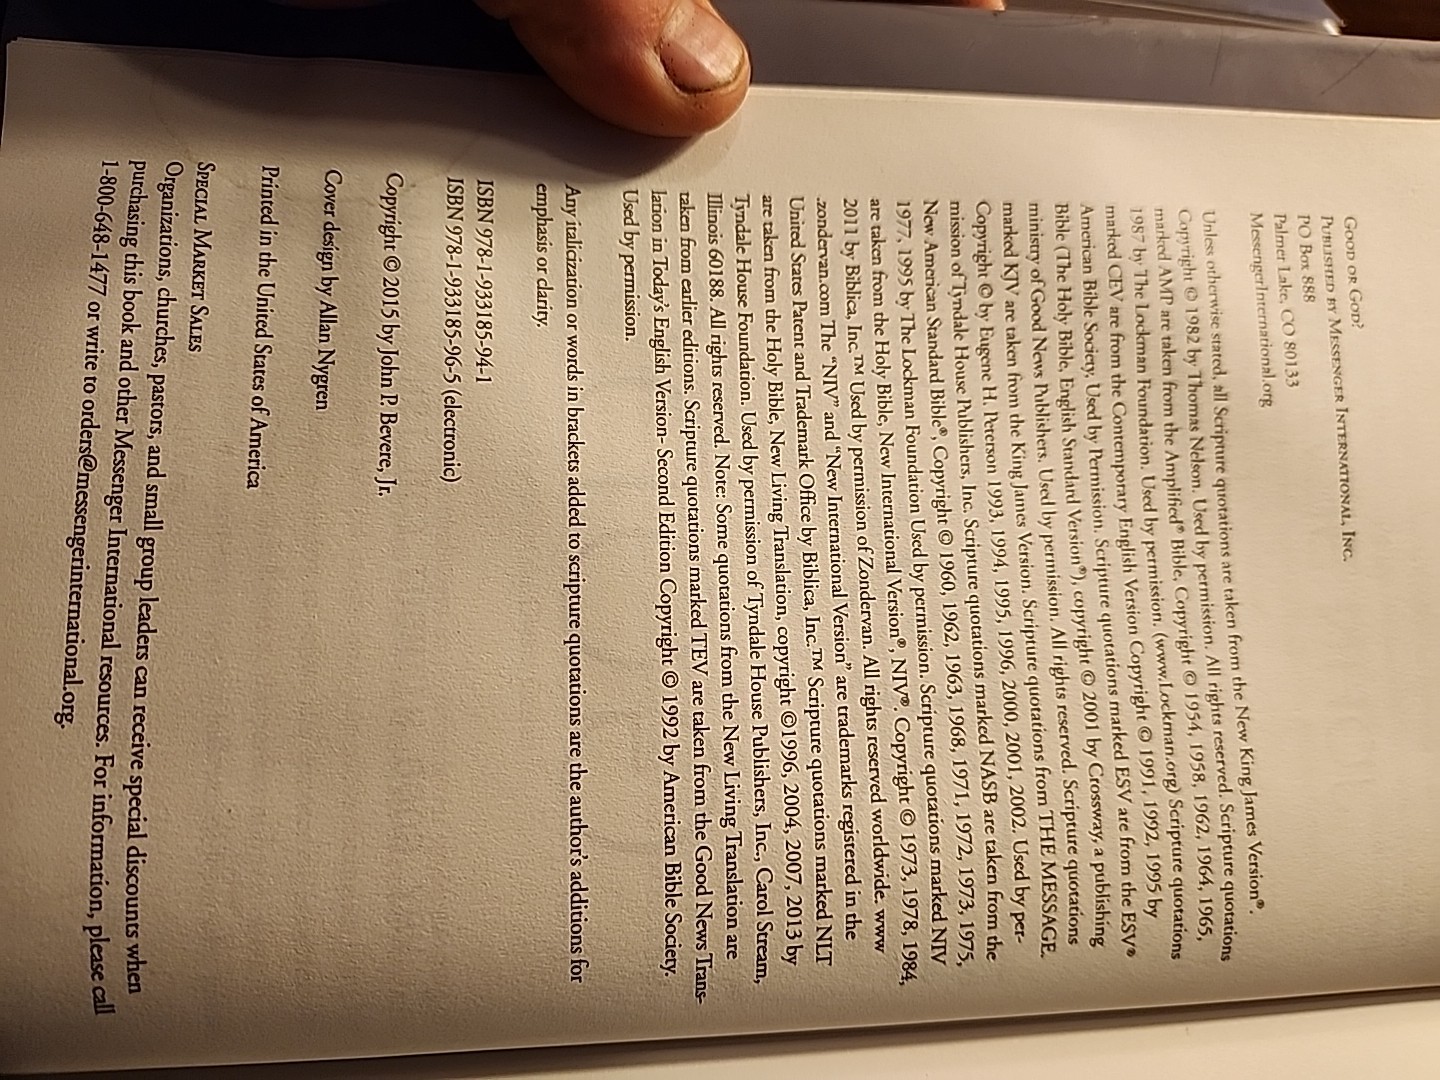 GOOD OR GOD?
PUBLISHED BY MESSENGER INTERNATIONAL, INC.
PO Box 888
Palmer Lake, CO 80133
MessengerInternational.org
Unless otherwise stated, all Scripture quotations are taken from the New King James Version®.
Copyright © 1982 by Thomas Nelson. Used by permission. All rights reserved. Scripture quotations
marked AMP are taken from the Amplified® Bible, Copyright © 1954, 1958, 1962, 1964, 1965,
1987 by The Lockman Foundation. Used by permission. (www.Lockman.org) Scripture quotations
marked CEV are from the Contemporary English Version Copyright © 1991, 1992, 1995 by
American Bible Society, Used by Permission. Scripture quotations marked ESV are from the ESV®
Bible (The Holy Bible, English Standard Version®), copyright © 2001 by Crossway, a publishing
ministry of Good News Publishers. Used by permission. All rights reserved. Scripture quotations
marked KJV are taken from the King James Version. Scripture quotations from THE MESSAGE.
Copyright © by Eugene H. Peterson 1993, 1994, 1995, 1996, 2000, 2001, 2002. Used by per-
mission of Tyndale House Publishers, Inc. Scripture quotations marked NASB are taken from the
New American Standard Bible®, Copyright © 1960, 1962, 1963, 1968, 1971, 1972, 1973, 1975,
1977, 1995 by The Lockman Foundation Used by permission. Scripture quotations marked NIV
are taken from the Holy Bible, New International Version®, NIV®. Copyright © 1973, 1978, 1984,
2011 by Biblica, Inc.™ Used by permission of Zondervan. All rights reserved worldwide. www
.zondervan.com The “NIV” and “New International Version” are trademarks registered in the
United States Patent and Trademark Office by Biblica, Inc.™ Scripture quotations marked NLT
are taken from the Holy Bible, New Living Translation, copyright ©1996, 2004, 2007, 2013 by
Tyndale House Foundation. Used by permission of Tyndale House Publishers, Inc., Carol Stream,
Illinois 60188. All rights reserved. Note: Some quotations from the New Living Translation are
taken from earlier editions. Scripture quotations marked TEV are taken from the Good News Trans-
lation in Today's English Version- Second Edition Copyright © 1992 by American Bible Society.
Used by permission.
Any italicization or words in brackets added to scripture quotations are the author's additions for
emphasis or clarity.
ISBN 978-1-933185-94-1
ISBN 978-1-933185-96-5 (electronic)
Copyright © 2015 by John P. Bevere, Jr.
Cover design by Allan Nygren
Printed in the United States of America
SPECIAL MARKET SALES
Organizations, churches, pastors, and small group leaders can receive special discounts when
purchasing this book and other Messenger International resources. For information, please call
1-800-648-1477 or write to orders@messengerinternational.org.